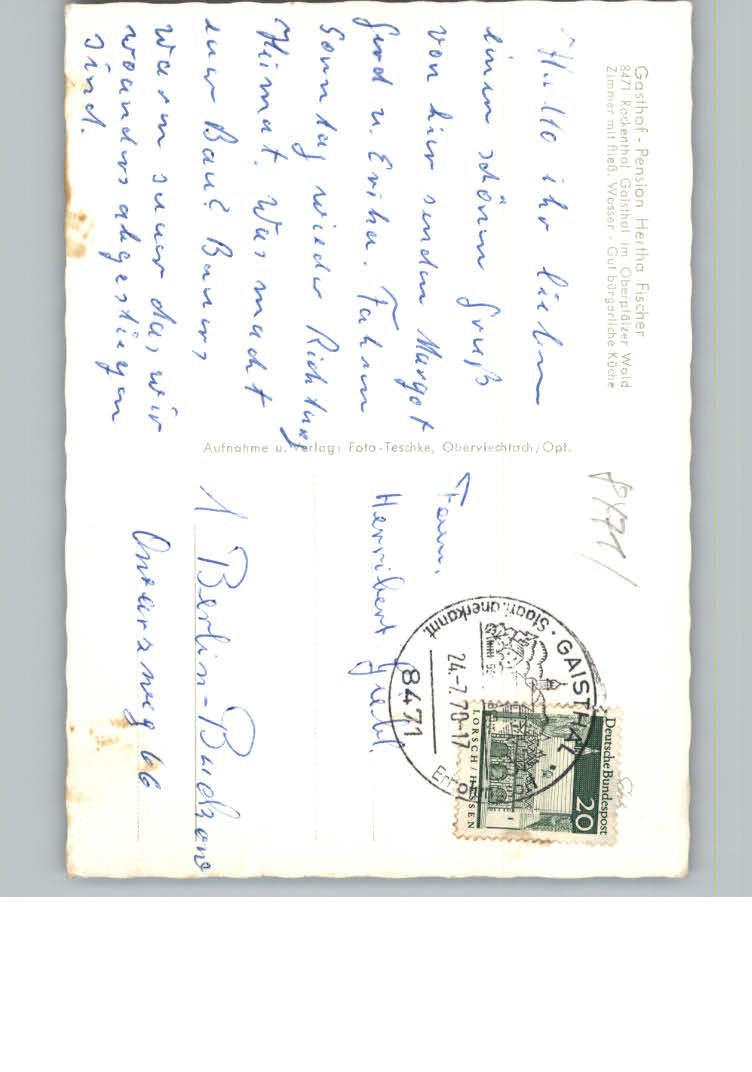 Gasthof - Pension Hertha Fischer
8471 Rackenthal Gaisthal im Oberpfälzer Wald
Zimmer mit fließ. Wasser - Gut bürgerliche Küche
Hallo ihr lieben
einen schönen Gruß
von hier senden Margot
Gerd u. Erika. Fahren
Sonntag wieder Richtung
Heimat. Was macht
euer Bau? Bauers
waren sauer das wir
woanders abgestiegen
sind.
Aufnahme u. Verlag: Foto-Teschke, Oberviechtach/Opf.
8471
Fam.
Herribert
1 Berlin-Buckow
66
Deutsche Bundespost
20
LORSCH/HESSEN
GAISTHAL
Staatl. anerkannt.
24.-7.70-17
8471